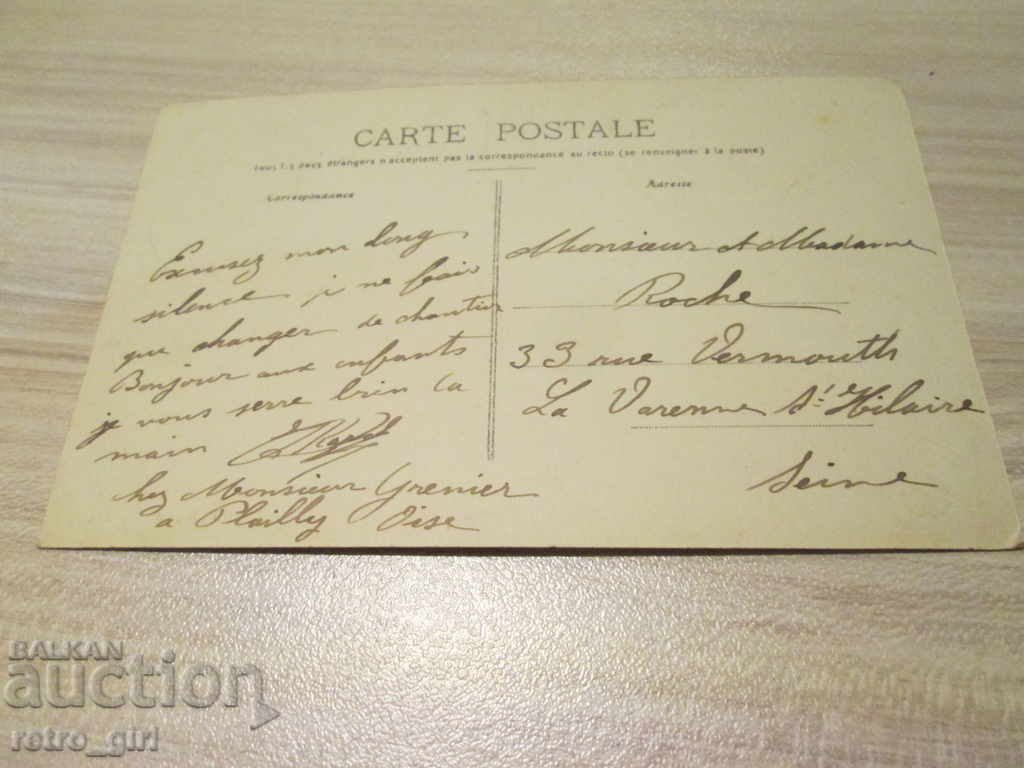 CARTE POSTALE
Tous les pays étrangers n'acceptent pas la correspondance au recto (se renseigner à la poste)
Correspondance
Excusez mon long
silence je ne fais
que changer de chantier
Bonjour aux enfants
je vous serre bien la
main
chez Monsieur Grenier
a Plailly Oise
Adresse
Monsieur et Madame
Roche
33 rue Vermouth
La Varenne St. Hilaire
Seine
BALKAN
auction
retro_girl